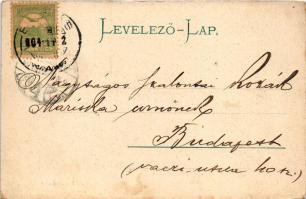 LEVELEZŐ-LAP.
Nagyságos Szalontai Kozák
Mariska úrnőnek
Budapest
(váczi utcza